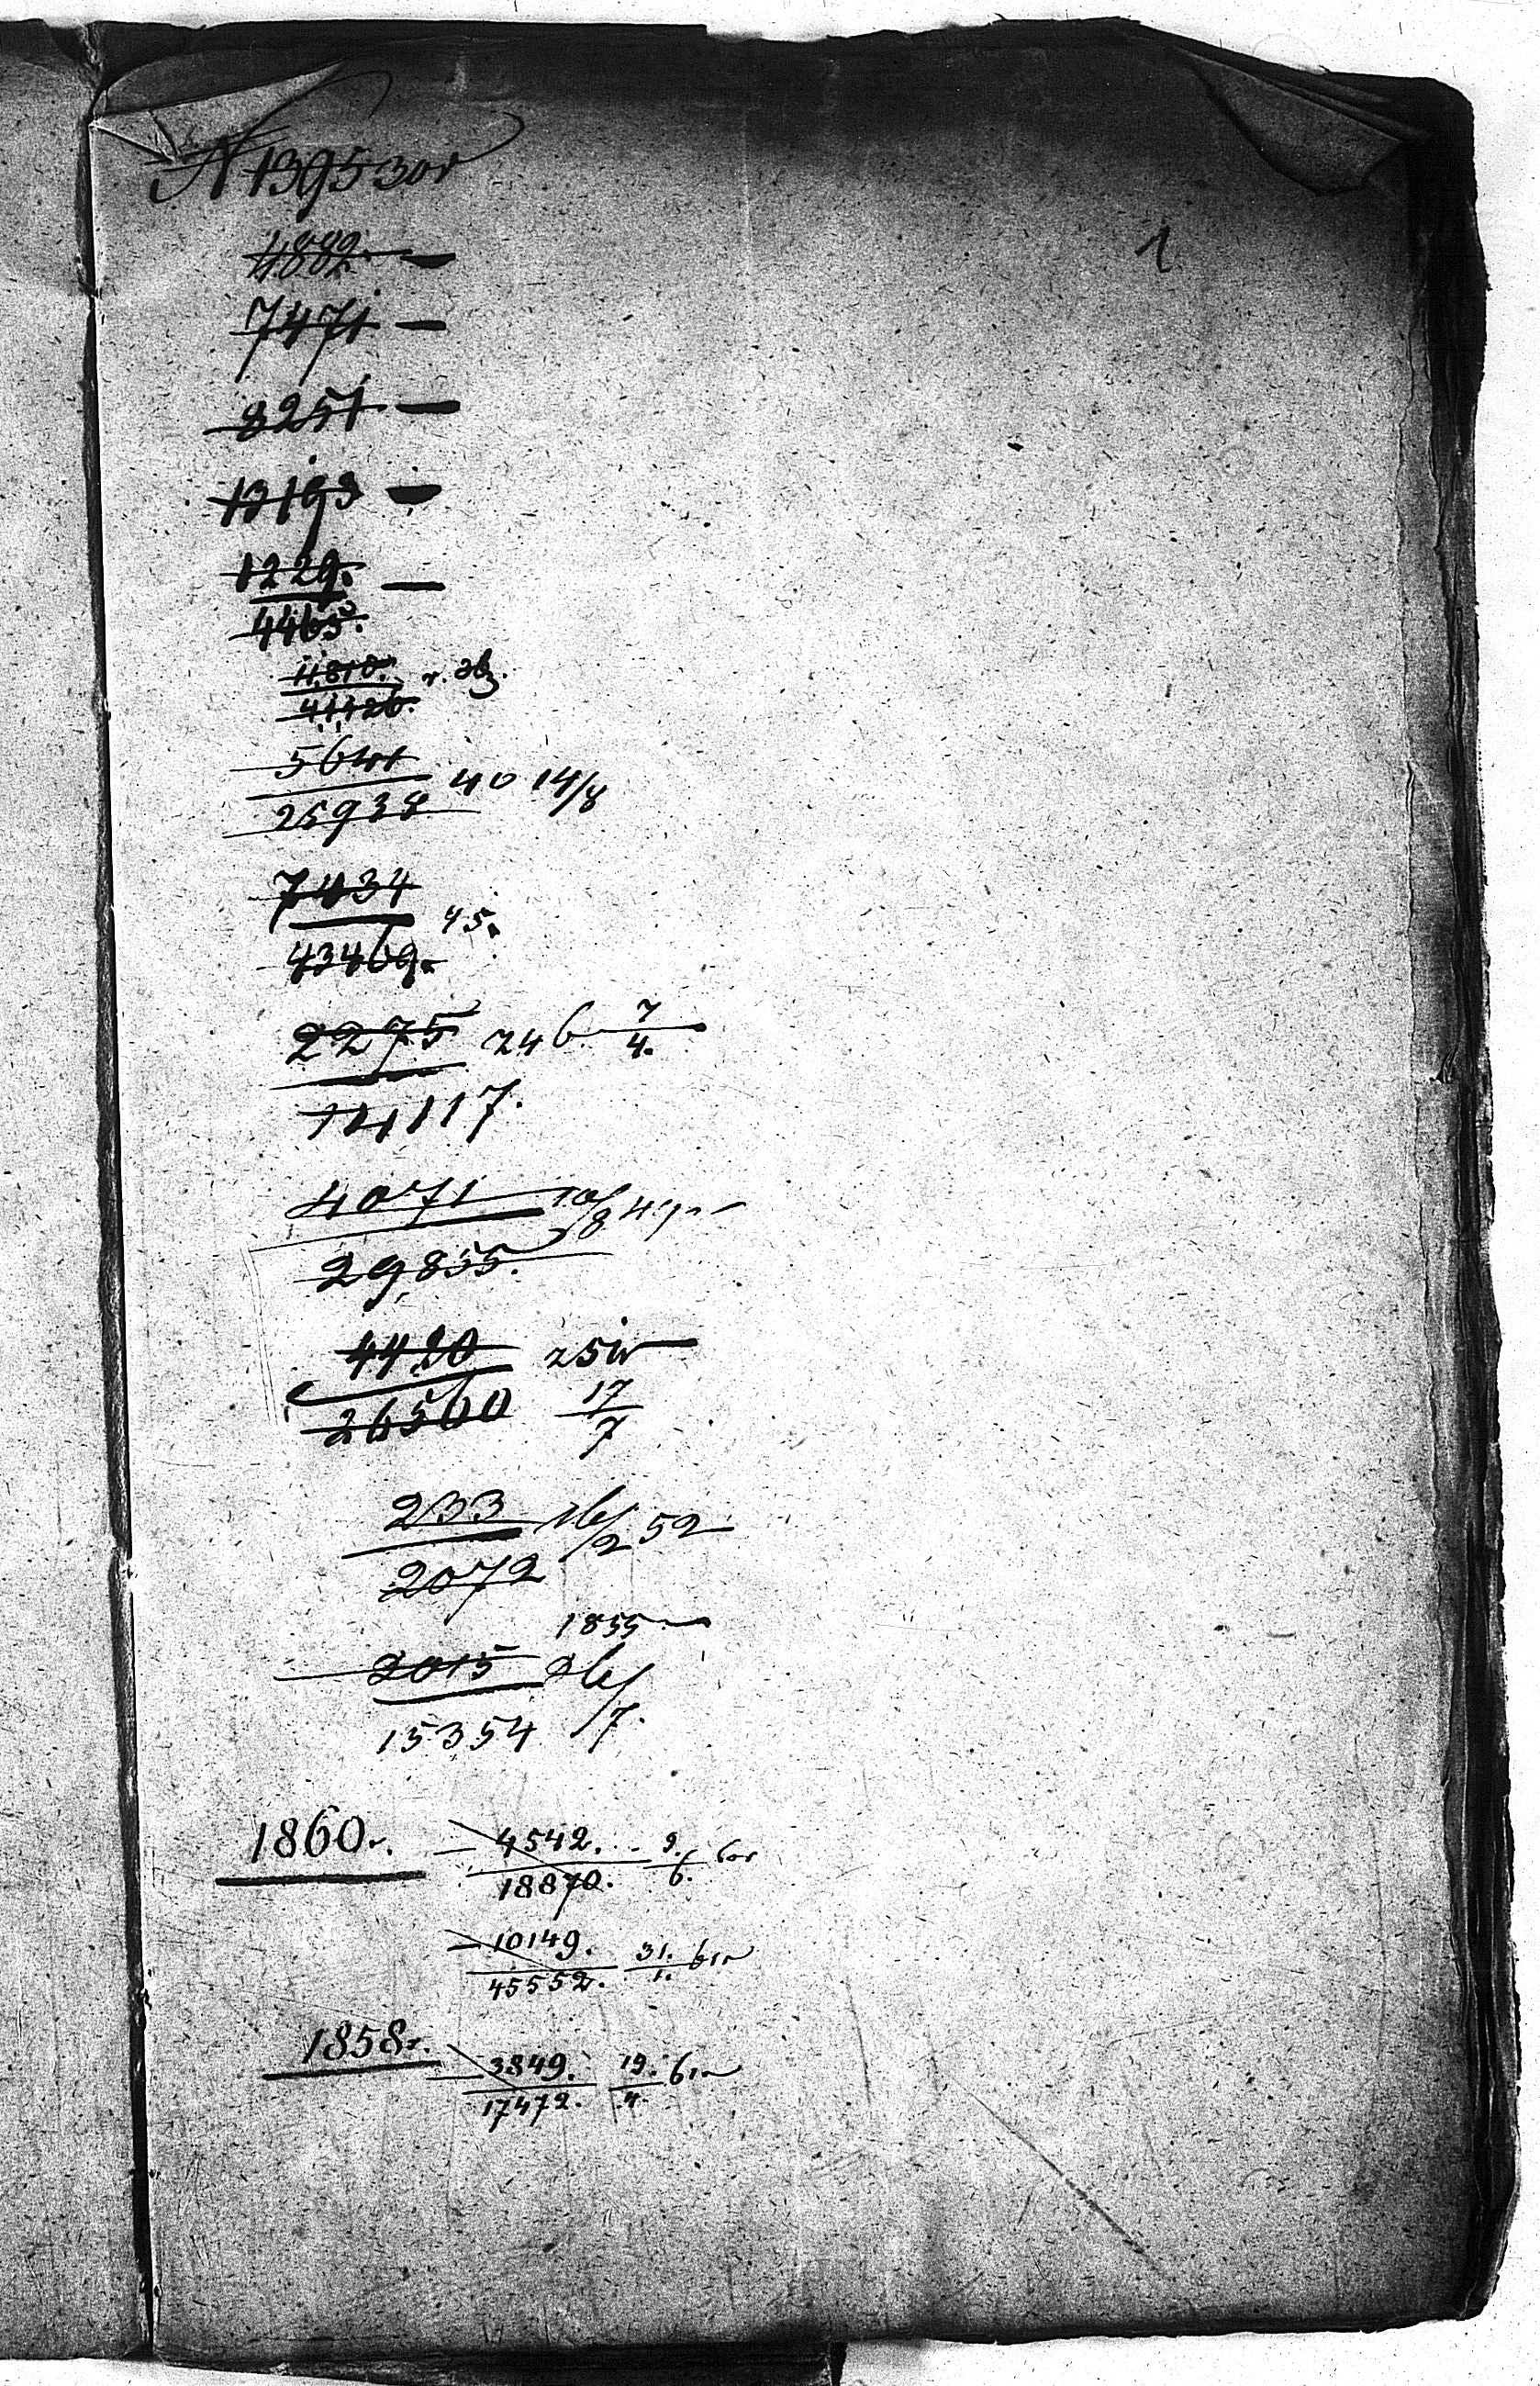 1
№ 13953
4882.
7471
8251
13193
1229.
4463.
11,810.
41126.
5641
25938 40 14/8
7434
43469. 45.
2275 246 7/4.
14117.
4071 10/8 49
29,855.
4420 25
26560 17/7
233 16/2 52
2072
1855
2015 26/7.
15354
1860г. 4542. 9./6. 60г
18870.
10149. 31./1. 61г
45552.
1858г. 3849. 19./4. 61г
17472.